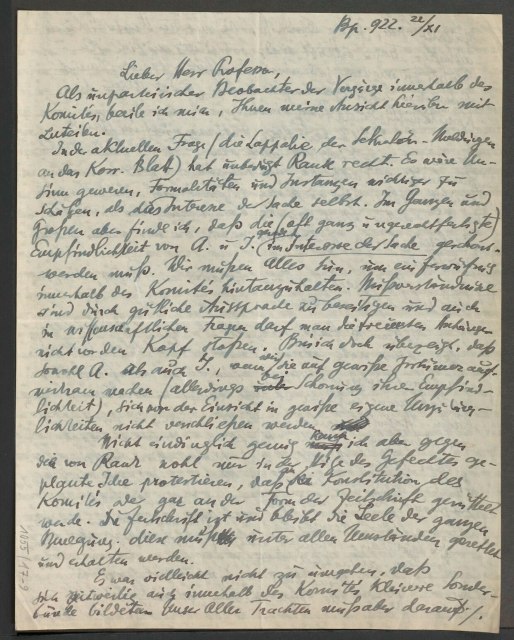 Bp. 922. 22/XI
Lieber Herr Professor,
Als unparteiischer Beobachter der Vorgänge innerhalb des
Komités, beeile ich mich, Ihnen meine Ansicht hierüber mit
zuteilen.
In der aktuellen Frage (die Lappalie der
an das Korr. Blatt) hat unbedingt Rank recht. Es wäre Un-
sinn gewesen, Formalitäten und Instanzen wichtiger zu
schätzen, als das Interesse der Sache selbst. Im Ganzen und
Großen aber finde ich, daß die (oft ganz ungerechtfertigte)
Empfindlichkeit von A. u J. im Interesse der Sache geschont
werden muß. Wir müßen Alles tun, um ein
innerhalb des Komités hintanzuhalten. Missverständnisse
sind durch gütliche Aussprache zu beseitigen und auch
in wissenschaftlichen Fragen darf man die
nicht vor den Kopf stoßen. Bin ich doch überzeugt, daß
sowohl A. als auch J., wenn wir sie auf gewisse Irrtümer auf-
merksam machen (allerdings bei Schonung ihrer Empfind-
lichkeit), sich vor der Einsicht in gewisse eigene
lichkeiten nicht verschließen werden
Nicht eindringlich genug kann ich aber gegen
die von Rank wohl nur in der Hitze des Gefechtes ge-
plante Idee protestieren, daß die Konstitution des
Komités oder gar an der Form der Zeitschrift gerüttelt
werde. Die Zeitschrift ist und bleibt die Seele der ganzen
Bewegung. diese muß unter allen Umständen gerettet
und erhalten werden.
Es war vielleicht nicht zu umgehen, daß
sich zeitweilig auch innerhalb des Komités kleinere Sonder-
bünde bildeten. Unser Aller Trachten muß aber darauf ./.